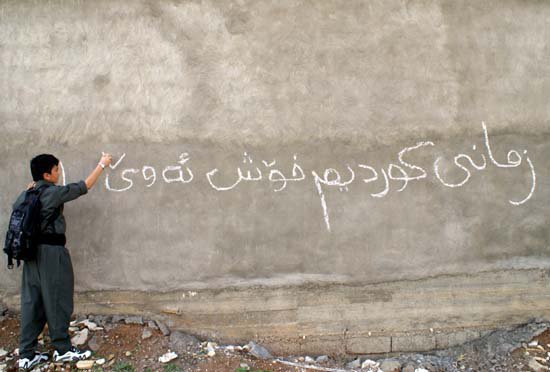 زمانی کوردیم خۆش ئەوێ !